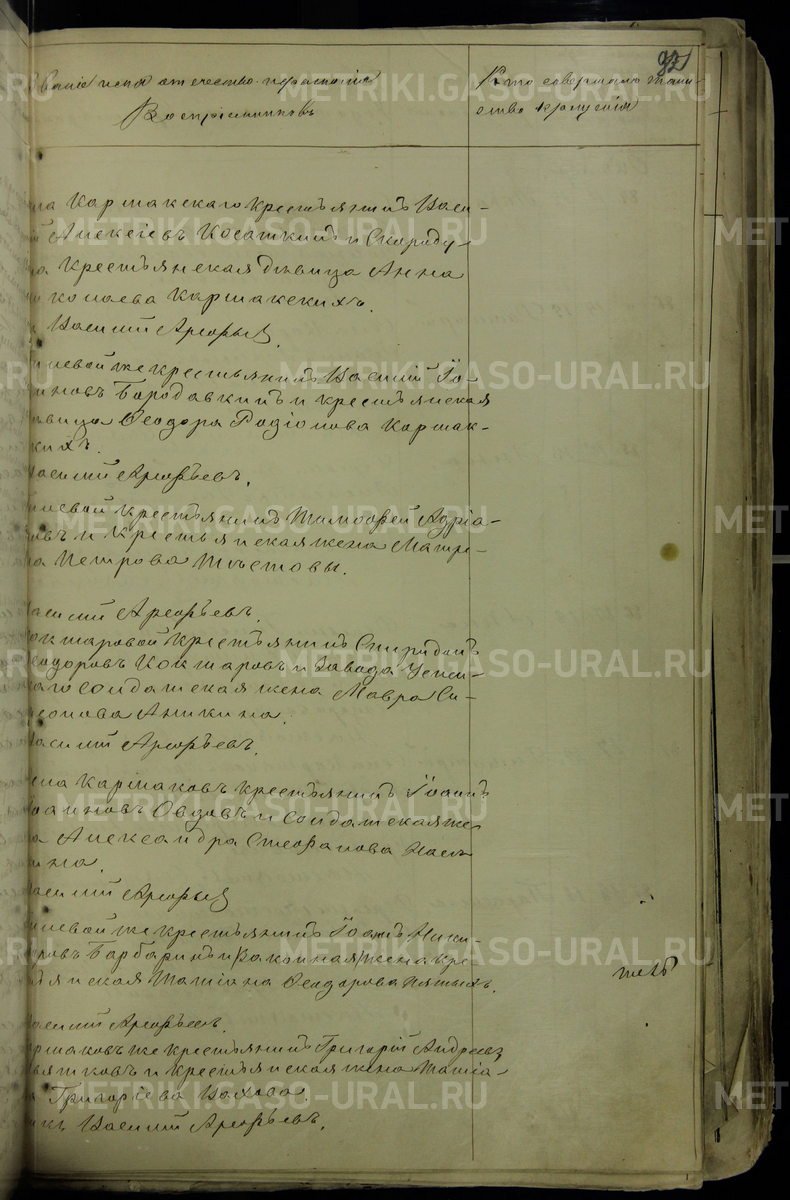 92
Званіе имя отчество и фамилія
Воспріемниковъ
Кто совершалъ таин-
ство крещенія
Кармакскаго крестьянинъ Васи-
й Алексіевъ Косаткинъ и Скороду-
ма крестьянская дѣвица Анна
Николаева Кармакскихъ.
Василій Арефьев
невой же крестьянинъ Василій Іо-
нновъ Бородавкинъ и крестьянская
дѣвица Ѳеодора Родіонова Кармак-
скихъ.
Василій Арефьевъ.
невой крестьянинъ Тимофей Адріа-
новъ и крестьянская жена Матре-
на Петрова Тюстовы.
Василій Арефьевъ.
Коктаровой крестьянинъ Спиридонъ
Ѳеодоровъ Коктаровъ и Завода Успен-
скаго солдатская жена Мавра Си-
меонова Аникина.
Василій Арефьевъ.
села Кармаковъ крестьянинъ Іоаннъ
Іоанновъ Овдовъ и солдатская же-
на Александра Стефанова
Василій Арефьев
невой же крестьянинъ Іоаннъ Ники-
форовъ Барбаринъ и законная жена кре-
стьянская Татіана Ѳеодорова Пятыхъ.
Василій Арефьев.
Кармаковъ же крестьянинъ Григорій Андреевъ
Вяткинъ и крестьянская жена Татіа-
на Григоріева Вахова.
Василій Арефьевъ.
METRIKI.GASO-URAL.RU